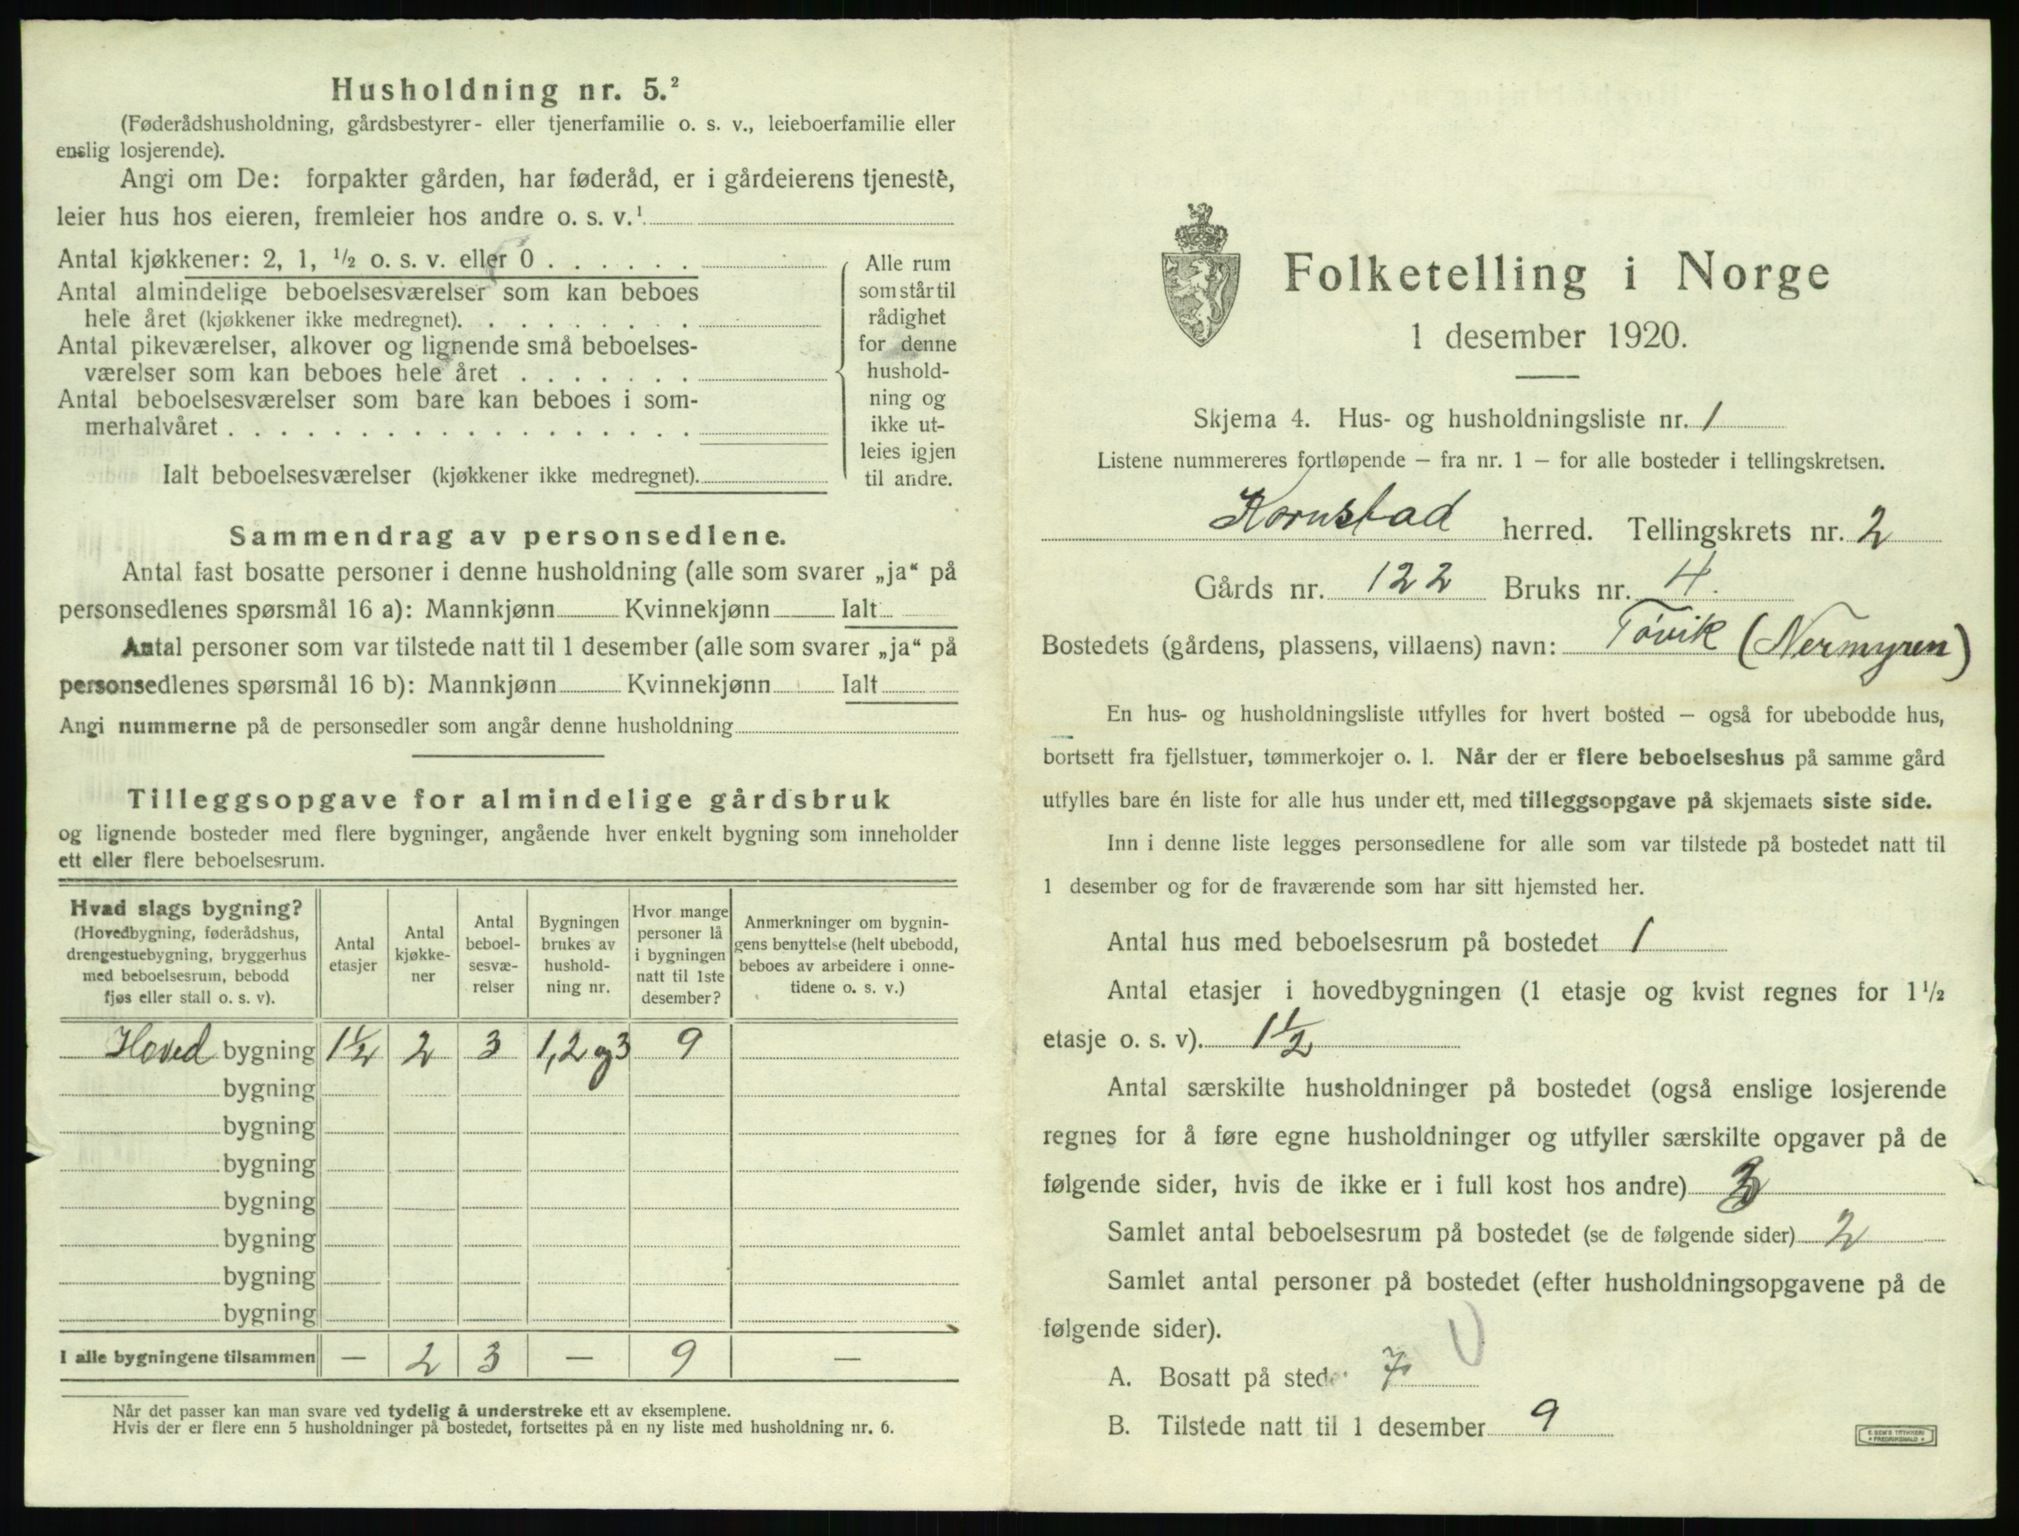 Husholdning nr. 5.²
(Føderådshusholdning, gårdsbestyrer- eller tjenerfamilie o. s. v., leieboerfamilie eller
enslig losjerende).
Angi om De: forpakter gården, har føderåd, er i gårdeierens tjeneste,
leier hus hos eieren, fremleier hos andre o. s. v.¹
Antal kjøkkener: 2, 1, ½ o. s. v. eller 0 . . . . . .
Antal almindelige beboelsesværelser som kan beboes
hele året (kjøkkener ikke medregnet). . . . . . . . .
Antal pikeværelser, alkover og lignende små beboelses-
værelser som kan beboes hele året . . . . . . .
Antal beboelsesværelser som bare kan beboes i som-
merhalvåret . . . . . . . . . . . . . . . . . .
Ialt beboelsesværelser (kjøkkener ikke medregnet).
Alle rum
som står til
rådighet
for denne
hushold-
ning og
ikke ut-
leies igjen
til andre.
Sammendrag av personsedlene.
Antal fast bosatte personer i denne husholdning (alle som svarer „ja“ på
personsedlenes spørsmål 16 a): Mannkjønn Kvinnekjønn Ialt
Antal personer som var tilstede natt til 1 desember (alle som svarer „ja“ på
personsedlenes spørsmål 16 b): Mannkjønn Kvinnekjønn Ialt
Angi nummerne på de personsedler som angår denne husholdning
Tilleggsopgave for almindelige gårdsbruk
og lignende bosteder med flere bygninger, angående hver enkelt bygning som inneholder
ett eller flere beboelsesrum.
Hvad slags bygning?
(Hovedbygning, føderådshus,
drengestuebygning, bryggerhus
med beboelsesrum, bebodd
fjøs eller stall o. s. v).
Antal
etasjer
Antal
kjøkke-
ner
Antal
beboel-
sesvæ-
relser
Bygningen
brukes av
hushold-
ning nr.
Hvor mange
personer lå
i bygningen
natt til 1ste
desember?
Anmerkninger om bygnin-
gens benyttelse (helt ubebodd,
beboes av arbeidere i onne-
tidene o. s. v.)
Hoved bygning 1½ 2 3 1, 2 og 3 9
bygning
bygning
bygning
bygning
bygning
bygning
bygning
I alle bygningene tilsammen — 2 3 — 9 —
Når det passer kan man svare ved tydelig å understreke ett av eksemplene.
Hvis der er flere enn 5 husholdninger på bostedet, fortsettes på en ny liste med husholdning nr. 6.
Folketelling i Norge
1 desember 1920.
Skjema 4. Hus- og husholdningsliste nr. 1
Listene nummereres fortløpende — fra nr. 1 — for alle bosteder i tellingskretsen.
Kornstad herred. Tellingskrets nr. 2
Gårds nr. 122 Bruks nr. 4.
Bostedets (gårdens, plassens, villaens) navn: Tøvik (Nermyren)
En hus- og husholdningsliste utfylles for hvert bosted — også for ubebodde hus,
bortsett fra fjellstuer, tømmerkojer o. l. Når der er flere beboelseshus på samme gård
utfylles bare én liste for alle hus under ett, med tilleggsopgave på skjemaets siste side.
Inn i denne liste legges personsedlene for alle som var tilstede på bostedet natt til
1 desember og for de fraværende som har sitt hjemsted her.
Antal hus med beboelsesrum på bostedet 1
Antal etasjer i hovedbygningen (1 etasje og kvist regnes for 1½
etasje o. s. v). 1½
Antal særskilte husholdninger på bostedet (også enslige losjerende
regnes for å føre egne husholdninger og utfyller særskilte opgaver på de
følgende sider, hvis de ikke er i full kost hos andre)
Samlet antal beboelsesrum på bostedet (se de følgende sider) 2
Samlet antal personer på bostedet (efter husholdningsopgavene på de
følgende sider).
A. Bosatt på stedet 7
B. Tilstede natt til 1 desember 9